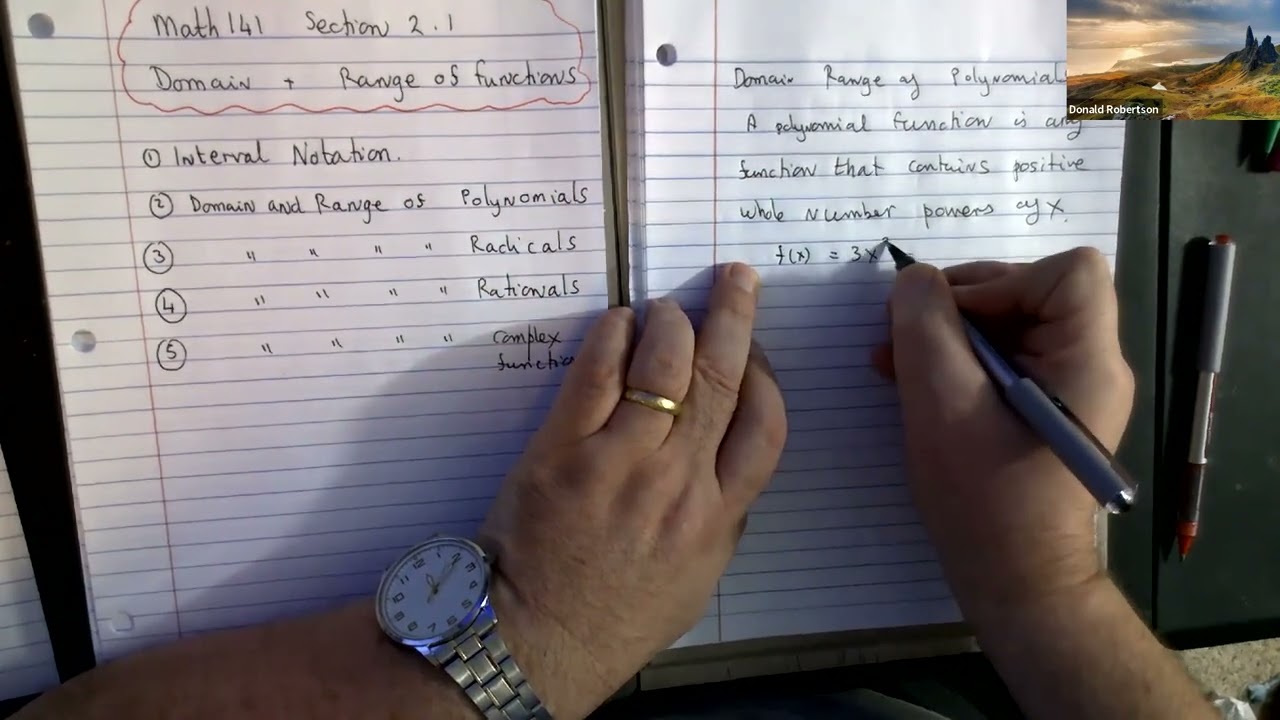 Math 141 Section 2.1
Domain + Range of functions
① Interval Notation.
② Domain and Range of Polynomials
③ " " " " Radicals
④ " " " " Rationals
⑤ " " " " complex
function
Domain Range of Polynomial
A polynomial function is any
function that contains positive
whole number powers of x.
f(x) = 3x
Donald Robertson